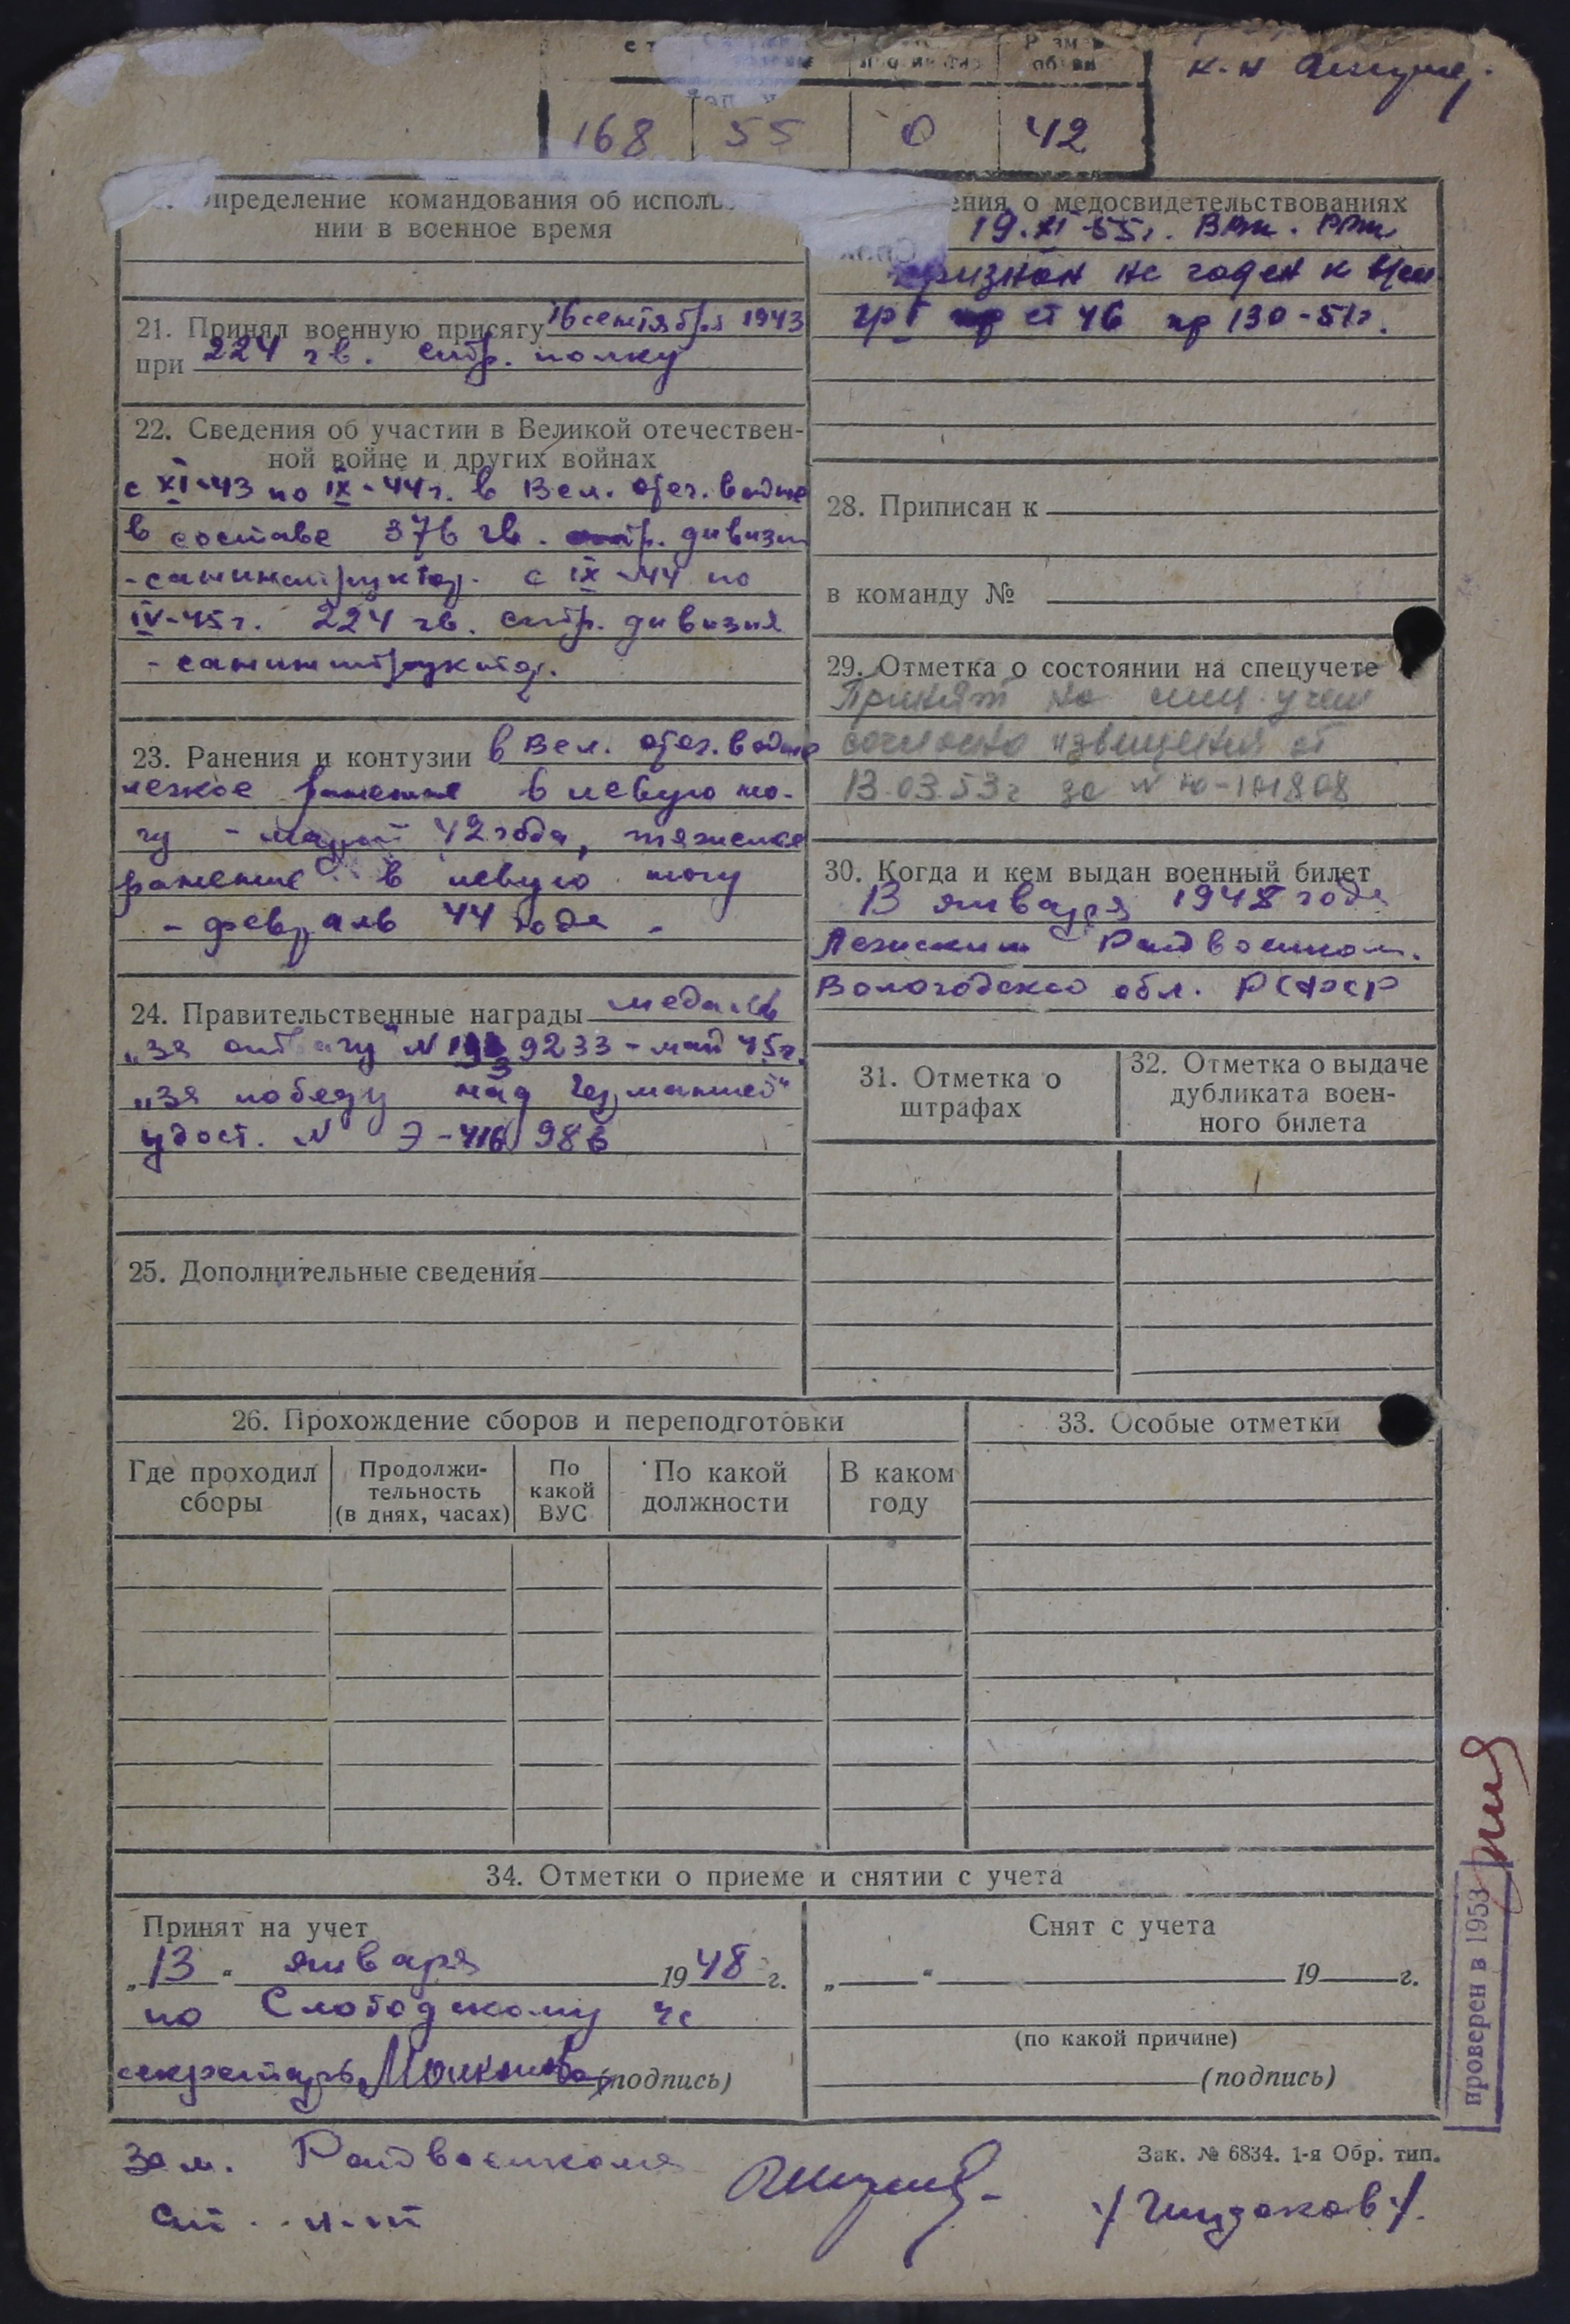 168 55 0 42
определение командования об исполь
нии в военное время
21. Принял военную присягу 16 сентября 1943
при 224 гв. стр. полку
22. Сведения об участии в Великой отечествен-
ной войне и других войнах
с XI-43 по IX-44г. в Вел. отеч. войне
в составе 376 гв. стр. дивизии
-санинструктор. с IX-44 по
IV-45г. 224 гв. стр. дивизия
- санинструктор.
23. Ранения и контузии в Вел. отеч. войне
легкое ранение в левую но-
гу - март 42 года, тяжелое
ранение в левую ногу
- февраль 44 года -
24. Правительственные награды медаль
„за отвагу" N 9233 - май 45г.
„за победу над Германией"
удост. N Э-416986
25. Дополнительные сведения
ения о медосвидетельствованиях
19.XI-55г. ВВК. РВК
признан не годен к
гр I ст 46 пр 130-51г.
28. Приписан к
в команду №
29. Отметка о состоянии на спецучете
Принят на спец. учет
согласно извещения от
13.03.53г за N Ю-101808
30. Когда и кем выдан военный билет
13 января 1948 года
Райвоенком.
Вологодской обл. РСФСР
31. Отметка о
штрафах
32. Отметка о выдаче
дубликата воен-
ного билета
26. Прохождение сборов и переподготовки
Где проходил
сборы
Продолжи-
тельность
(в днях, часах)
По
какой
ВУС
По какой
должности
В каком
году
33. Особые отметки
34. Отметки о приеме и снятии с учета
Принят на учет
„13" января 1948 г.
по Слободскому
секретарь (подпись)
Снят с учета
„ " 19 г.
(по какой причине)
(подпись)
проверен в 1953
Зам. Райвоенкома
ст. л-т
Зак. № 6834. 1-я Обр. тип.